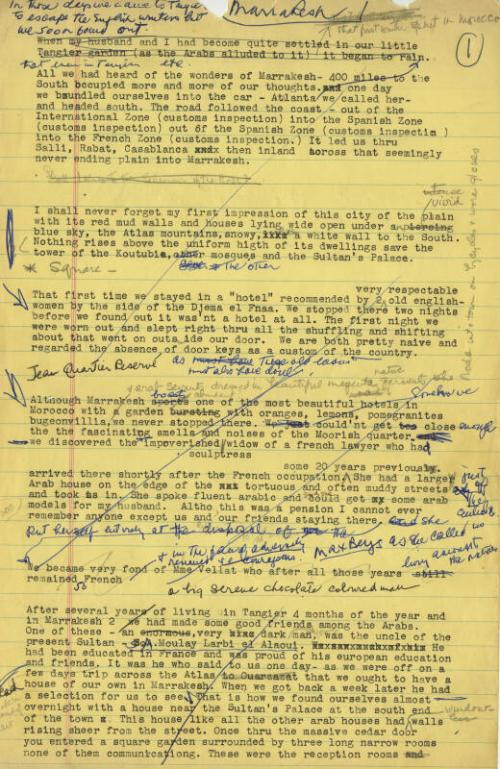 In those days we came to Tangier
to escape the English winters but
we soon found out
Marrakesh 1
(1)
When my husband and I had become quite settled in our little
Tangier garden (as the Arabs alluded to it) it began to rain.
All we had heard of the wonders of Marrakesh- 400 miles to the
South occupied more and more of our thoughts.and one day
we boundled ourselves into the car - Atlanta/we called her-
and headed south. The road followed the coast - out of the
International Zone (customs inspection) into the Spanish Zone
(customs inspection) out of the Spanish Zone (customs inspectim )
into the French Zone (customs inspection.) It led us thru
Salli, Rabat, Casablanca xxdx then inland across that seemingly
never ending plain into Marrakesh.
intense
/vivid
I shall never forget my first impression of this city of the plain
with its red mud walls and houses lying wide open under a piercing
blue sky, the Atlas mountains,snowy,xxxx a white wall to the South.
Nothing rises above the uniform higth of its dwellings save the
tower of the Koutubia,other mosques and the Sultan's Palace.
* the other
* Square -
very respectable
That first time we stayed in a "hotel" recommended by 2 old english-
women by the side of the Djema el Fnaa. We stopped there two nights
before we found out it was nt a hotel at all. The first night we
were worn out and slept right thru all the shuffling and shifting
about that went on outs ide our door. We are both pretty naive and
regarded the absence of door keys as a custom of the country.
must also have done.
Jean Quartier Reservé
native
Although Marrakesh boasts one of the most beautiful hotels in
Morocco with a garden bursting with oranges, lemons, pomegranites
bugeonvillia,we never stopped there. We could'nt get too close enough
the the fascinating smells and noises of the Moorish quarter.
we discovered the impoverished/widow of a french lawyer who had
sculptress
some 20 years previously.
arrived there shortly after the French occupation. She had a larger
Arab house on the edge of the xxx tortuous and often muddy streets
and took us in. She spoke fluent arabic and could get xy some arab
models for my husband. Altho this was a pension I cannot ever
remember anyone except us and our friends staying there. She
put herself entirely at the disposal of the
Max Beys as she called us
We became very fond of Mme Vellat who after all those years still
remained French
living amongst
the natives
a big serene chocolate coloured man
After several years of living in Tangier 4 months of the year and
in Marrakesh 2 we had made some good friends among the Arabs.
One of these - an enormous,very xixs dark man, was the uncle of the
present Sultan - S.A.Moulay Larbi el Alaoui. He
had been educated in France and was proud of his european education
and friends. It was he who said to us one day- as we were off on a
few days trip across the Atlas to Ouarzazat that we ought to have a
house of our own in Marrakesh. When we got back a week later he had
a selection for us to see. That is how we found ourselves almost
overnight with a house near the Sultan's Palace at the south end
of the town x. This house like all the other arab houses had walls
rising sheer from the street. Once thru the massive cedar door
you entered a square garden surrounded by three long narrow rooms
none of them communicationg. These were the reception rooms and